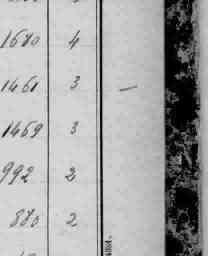 1680 4
1461 3 —
1469 3
992 2
880 2